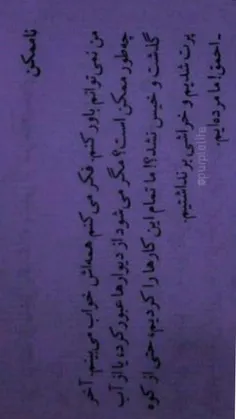 ناممکن
من نمی‌توانم باور کنم. فکر می‌کنم همه‌اش خواب می‌بینم. آخر
چه‌طور ممکن است؟ مگر می‌شود از دیوارها عبور کرده یا از آب
گذشت و خیس نشد؟! ما تمام این کارها را کردیم، حتی از کوه
پرت شدیم و خراشی برنداشتیم.
ـ احمق! ما مرده‌ایم.
@purplelifa